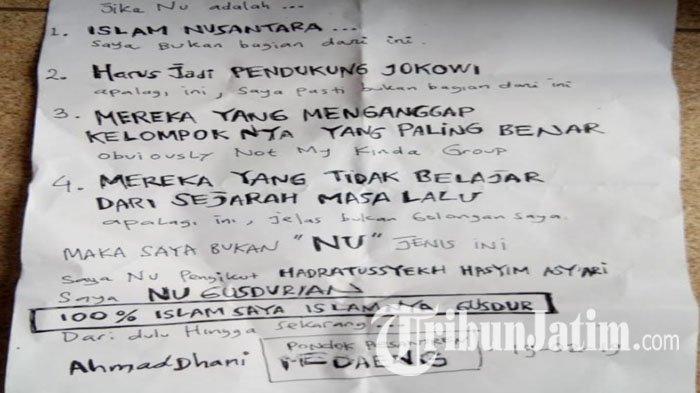 Jika NU adalah ...
1. ISLAM NUSANTARA ...
Saya Bukan bagian dari ini.
2. Harus Jadi PENDUKUNG JOKOWI
apalagi ini, Saya pasti bukan bagian dari ini
3. MEREKA YANG MENGANGGAP
KELOMPOK NYA YANG PALING BENAR
Obviously Not My Kinda Group
4. MEREKA YANG TIDAK BELAJAR
DARI SEJARAH MASA LALU
apalagi ini, jelas bukan Golongan Saya.
MAKA SAYA BUKAN "NU" JENIS INI
Saya NU Pengikut HADRATUSSYEKH HASYIM ASY'ARI
Saya NU GUSDURIAN
100% ISLAM SAYA ISLAM NYA GUSDUR
Dari dulu Hingga Sekarang
TribunJatim.com
Ahmad Dhani
Pondok
MEDAENG